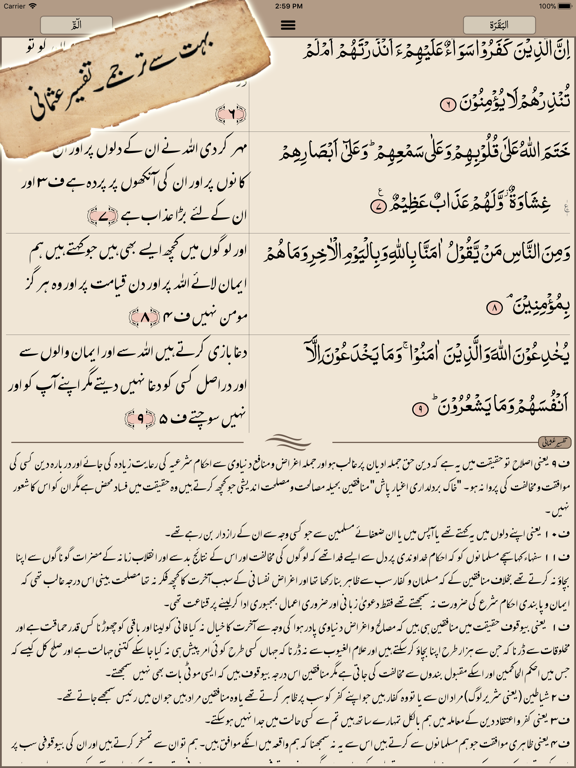 Carrier 2:59 PM 100%
الٓمّٓ
البَقَرَة
بہت سے ترجمے۔ تفسیر عثمانی
اِنَّ الَّذِيْنَ كَفَرُوْا سَوَآءٌ عَلَيْهِمْ ءَاَنْذَرْتَهُمْ اَمْ لَمْ
تُنْذِرْهُمْ لَا يُؤْمِنُوْنَ ٦
﴿٦﴾
خَتَمَ اللّٰهُ عَلٰى قُلُوْبِهِمْ وَعَلٰى سَمْعِهِمْ ؕ وَعَلٰٓى اَبْصَارِهِمْ
غِشَاوَةٌ ؗ وَّلَهُمْ عَذَابٌ عَظِيْمٌ ٧
مہر کر دی اللہ نے ان کے دلوں پر اور ان کے
کانوں پر اور ان کی آنکھوں پر پردہ ہے ف۳ اور
ان کے لئے بڑا عذاب ہے ﴿۷﴾
وَمِنَ النَّاسِ مَنْ يَّقُوْلُ اٰمَنَّا بِاللّٰهِ وَبِالْيَوْمِ الْاٰخِرِ وَمَا هُمْ
بِمُؤْمِنِيْنَ ۘ ٨
اور لوگوں میں کچھ ایسے بھی ہیں جو کہتے ہیں ہم
ایمان لائے اللہ پر اور دن قیامت پر اور وہ ہر گز
مومن نہیں ف۴ ﴿۸﴾
يُخٰدِعُوْنَ اللّٰهَ وَالَّذِيْنَ اٰمَنُوْا ۚ وَمَا يَخْدَعُوْنَ اِلَّاۤ
اَنْفُسَهُمْ وَمَا يَشْعُرُوْنَ ؕ ٩
دغا بازی کرتے ہیں اللہ سے اور ایمان والوں سے
اور دراصل کسی کو دغا نہیں دیتے مگر اپنے آپ کو اور
نہیں سوچتے ف۵ ﴿۹﴾
تفسیر عثمانی
ف۹ یعنی اصلاح تو حقیقت میں یہ ہے کہ دین حق جملہ ادیان پر غالب ہو اور جملہ اغراض و منافع دنیاوی سے احکام شرعیہ کی رعایت زیادہ کی جائے اور دربارہ دین کسی کی
موافقت و مخالفت کی پروا نہ ہو۔ "خاک بردلداری اغیار پاش" منافقین بحیلہ مصالحت و مصلحت اندیشی جو کچھ کرتے ہیں وہ حقیقت میں فساد محض ہے مگر ان کو اس کا شعور
نہیں۔
ف۱۰ یعنی اپنے دلوں میں یہ کہتے تھے یا آپس میں یا ان ضعفائے مسلمین سے جو کسی وجہ سے ان کے رازدار بن رہے تھے۔
ف۱۱ سفہاء کہا سچے مسلمانوں کو کہ احکام خداوندی پر دل سے ایسے فدا تھے کہ لوگوں کی مخالفت اور اس کے نتائج بد سے اور انقلاب زمانہ کے مضرات گوناگوں سے اپنا
بچاؤ نہ کرتے تھے بخلاف منافقین کے کہ مسلمان و کفار سب سے ظاہر بنا رکھا تھا اور اغراض نفسانی کے سبب آخرت کا کچھ فکر نہ تھا مصلحت بینی اس درجہ غالب تھی کہ
ایمان و پابندی احکام شرع کی ضرورت نہ سمجھتے تھے فقط دعویٰ زبانی اور ضروری اعمال بمجبوری ادا کر لینے پر قناعت تھی۔
ف۱ یعنی بیوقوف حقیقت میں منافقین ہی ہیں کہ مصالح و اغراض دنیاوی پادر ہوا کی وجہ سے آخرت کا خیال نہ کیا فانی کو لینا اور باقی کو چھوڑنا کس قدر حماقت ہے اور
مخلوقات سے ڈرنا کہ جن سے ہزار طرح اپنا بچاؤ کر سکتے ہیں اور علام الغیوب سے نہ ڈرنا کہ جہاں کسی طرح کوئی امر پیش ہی نہ کیا جا سکے کتنی جہالت ہے اور صلح کل کیسے کہ
جس میں احکم الحاکمین اور اسکے مقبول بندوں سے مخالفت کی جاتی ہے مگر منافقین اس درجہ بیوقوف ہیں کہ ایسی موٹی بات بھی نہیں سمجھتے۔
ف۲ شیاطین (یعنی شریر لوگ) مراد ان سے یا تو وہ کفار ہیں جو اپنے کفر کو سب پر ظاہر کرتے تھے یا وہ منافقین مراد ہیں جو ان میں رئیس سمجھے جاتے تھے۔
ف۳ یعنی کفر و اعتقاد دین کے معاملہ میں ہم بالکل تمہارے ساتھ ہیں تم سے کسی حالت میں جدا نہیں ہو سکتے۔
ف۴ یعنی ظاہری موافقت جو ہم مسلمانوں سے کرتے ہیں اس سے یہ نہ سمجھنا کہ ہم واقعہ میں انکے موافق ہیں۔ ہم تو ان سے تمسخر کرتے ہیں اور ان کی بیوقوفی سب پر